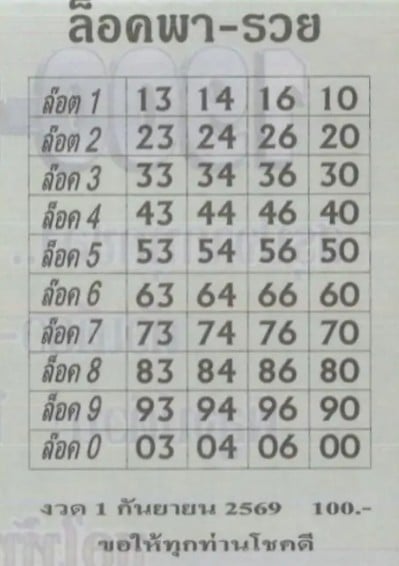 ล็อคพา-รวย
ล๊อต 1 13 14 16 10
ล๊อต 2 23 24 26 20
ล๊อค 3 33 34 36 30
ล็อค 4 43 44 46 40
ล็อค 5 53 54 56 50
ล๊อค 6 63 64 66 60
ล็อค 7 73 74 76 70
ล็อค 8 83 84 86 80
ล็อค 9 93 94 96 90
ล๊อค 0 03 04 06 00
งวด 1 กันยายน 2569 100.-
ขอให้ทุกท่านโชคดี